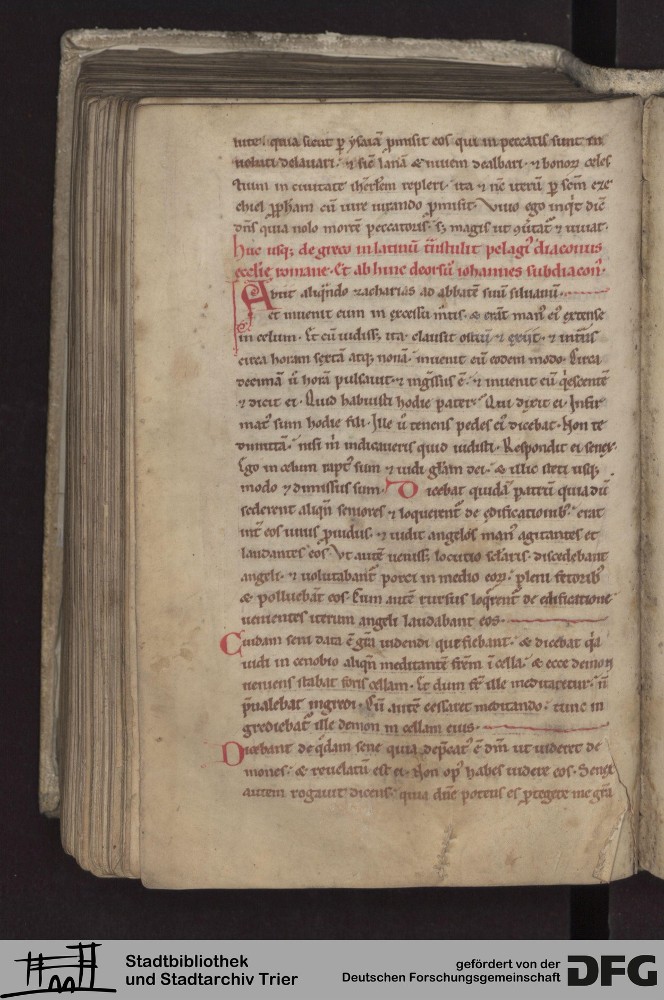 nite quia sicut p ysaiā pmisit eos qui in peccatis sunt in
uoluti delauari · ⁊ sic̄ lanā & niuem dealbari · ⁊ bonor̄ celes
tium in ciuitate ihrlm̄ repleri · ita ⁊ nc̄ iterū p sc̄m eze
chiel p̄pham cū iure iurando p̄misit · Viuo ego inqt dic̄
dn̄s quia nolo mortē peccatoris · s; magis ut ꝯu̾tat᷑ ⁊ uiuat ·
huc usq; de greco in latinū t̄nstulit pelagi᷒ diaconus
eccl̄ie romane · Et ab hinc deorsū iohannes subdiacon᷒ ·
Abiit aliqn̄do zacharias ad abbatē suū siluanū ·
et inuenit eum in excessu m̄tis · & erāt man᷒ ei᷒ extense
in celum · Et cū uidiss; ita · clausit ostiū · ⁊ exiit · ⁊ int̄ns
circa horam sextā atq; nonā · inuenit eū eodem modo · Circa
decimā u̾ horā pulsauit · ⁊ ingr̄ssus ē · ⁊ inuenit eū qescentē
⁊ dicit ei · Quid habuisti hodie pater · Qui dixit ei · Infir
mat᷒ sum hodie fili · Ille u̾ tenens pedes ei᷒ dicebat · Non te
dimittā · nisi m̄ indicaueris quid uidisti · Respondit ei senex ·
Ego in celum rapt᷒ sum ⁊ uidi gl̄am dei · & illic steti usq;
modo ⁊ dimissus sum · Dicebat quidā patrū quia dū
sederent aliqn̄ seniores ⁊ loquerent᷑ de edificationib᷒ · erat
int̄ eos unus p̄uidus · ⁊ uidit angelos man᷒ agitantes et
laudantes eos · Vt autē ueniss; locutio sclaris · discedebant
angeli · ⁊ uolutabant᷑ porci in medio eor̄ · pleni fetorib᷒
& polluebāt eos · Cum autē rursus loqrent᷑ de edificatione
uenientes iterum angeli laudabant eos ·
Cuidam seni data ē gr̄a uidendi que fiebant · & dicebat qa
uidi in cenobio aliqn̄ meditantē fr̄em ī cella · & ecce demon
ueniens stabat foris cellam · Et dum fr̄ ille meditaretur · n̄
p̄ualebat ingredi · Cū autē cessaret meditando · tunc in
grediebat᷑ ille demon in cellam eius ·
Dicebant de qdam sene quia dep̄cat᷒ ē dm̄ ut uideret de
mones · & reuelatū est ei · Non op᷒ habes uidere eos · Senex
autem rogauit dicens · quia dn̄e potens es p̄tegere me gr̄a
Stadtbibliothek
und Stadtarchiv Trier
gefördert von der
Deutschen Forschungsgemeinschaft
DFG